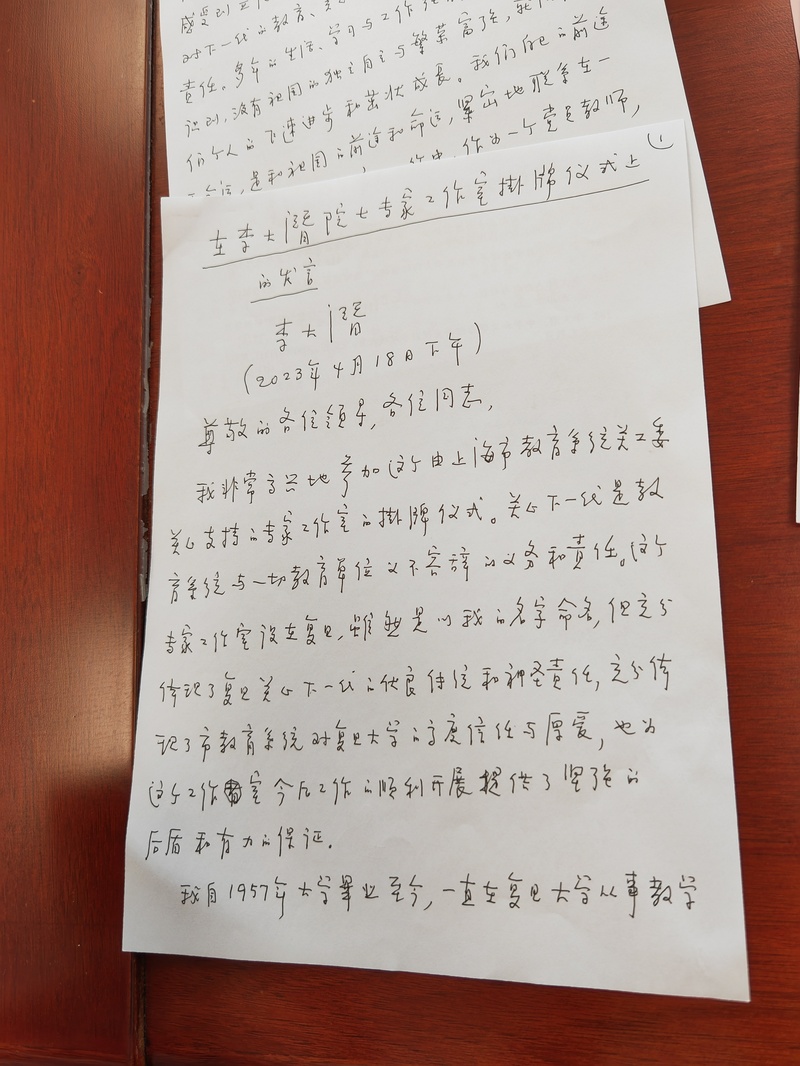 感受到
对下一代的教育、
责任。多年的生活、学习与工作
识到，没有祖国的独立自主与繁荣富强，就
们个人的飞速进步和茁壮成长。我们自己的前途
命运，是和祖国的前途和命运，紧密地联系在一
作为一个党员教师，
(1
在李大潛院士专家工作室掛牌仪式上
的发言
李大潛
(2023年4月18日下午)
尊敬的各位领导，各位同志，
我非常高兴地参加这个由上海市教育系统关工委
关心支持的专家工作室的掛牌仪式。关心下一代是教
育系统与一切教育单位义不容辞的义务和责任。这个
专家工作室设在复旦，虽然是以我的名字命名，但充分
体现了复旦关心下一代的优良传统和神圣责任，充分体
现了市教育系统对复旦大学的高度信任与厚爱，也为
这个工作室今后工作的顺利开展提供了坚强的
后盾和有力的保证。
我自1957年大学畢业至今，一直在复旦大学从事教学